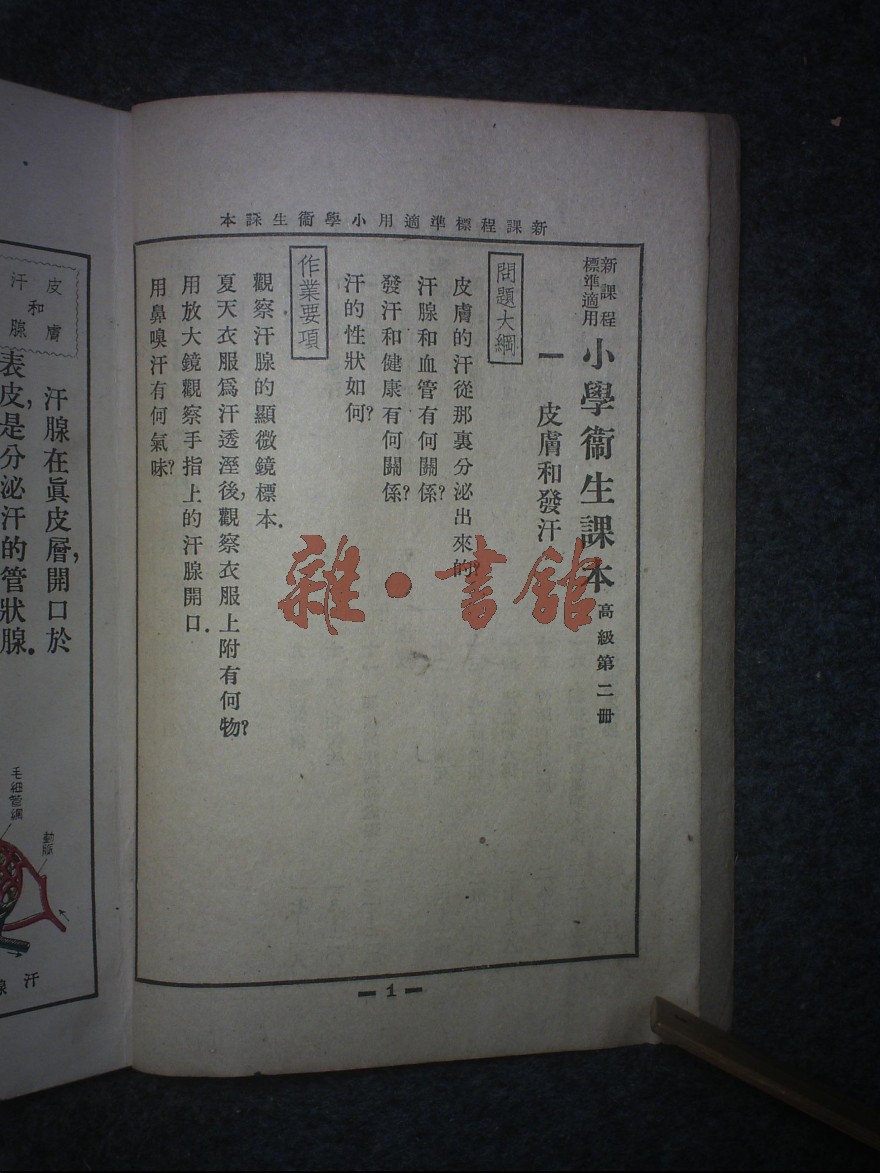 新課程標準適用小學衞生課本
新課程
標準適用
小學衞生課本 高級第二冊
一　皮膚和發汗
問題大綱
皮膚的汗從那裏分泌出來的?
汗腺和血管有何關係?
發汗和健康有何關係?
汗的性狀如何?
作業要項
觀察汗腺的顯微鏡標本.
夏天衣服爲汗透溼後,觀察衣服上附有何物?
用放大鏡觀察手指上的汗腺開口.
用鼻嗅汗有何氣味?
1
雜·書舘
皮膚
和
汗腺
汗腺在眞皮層,開口於
表皮,是分泌汗的管狀腺.
毛細管網
動脈
汗